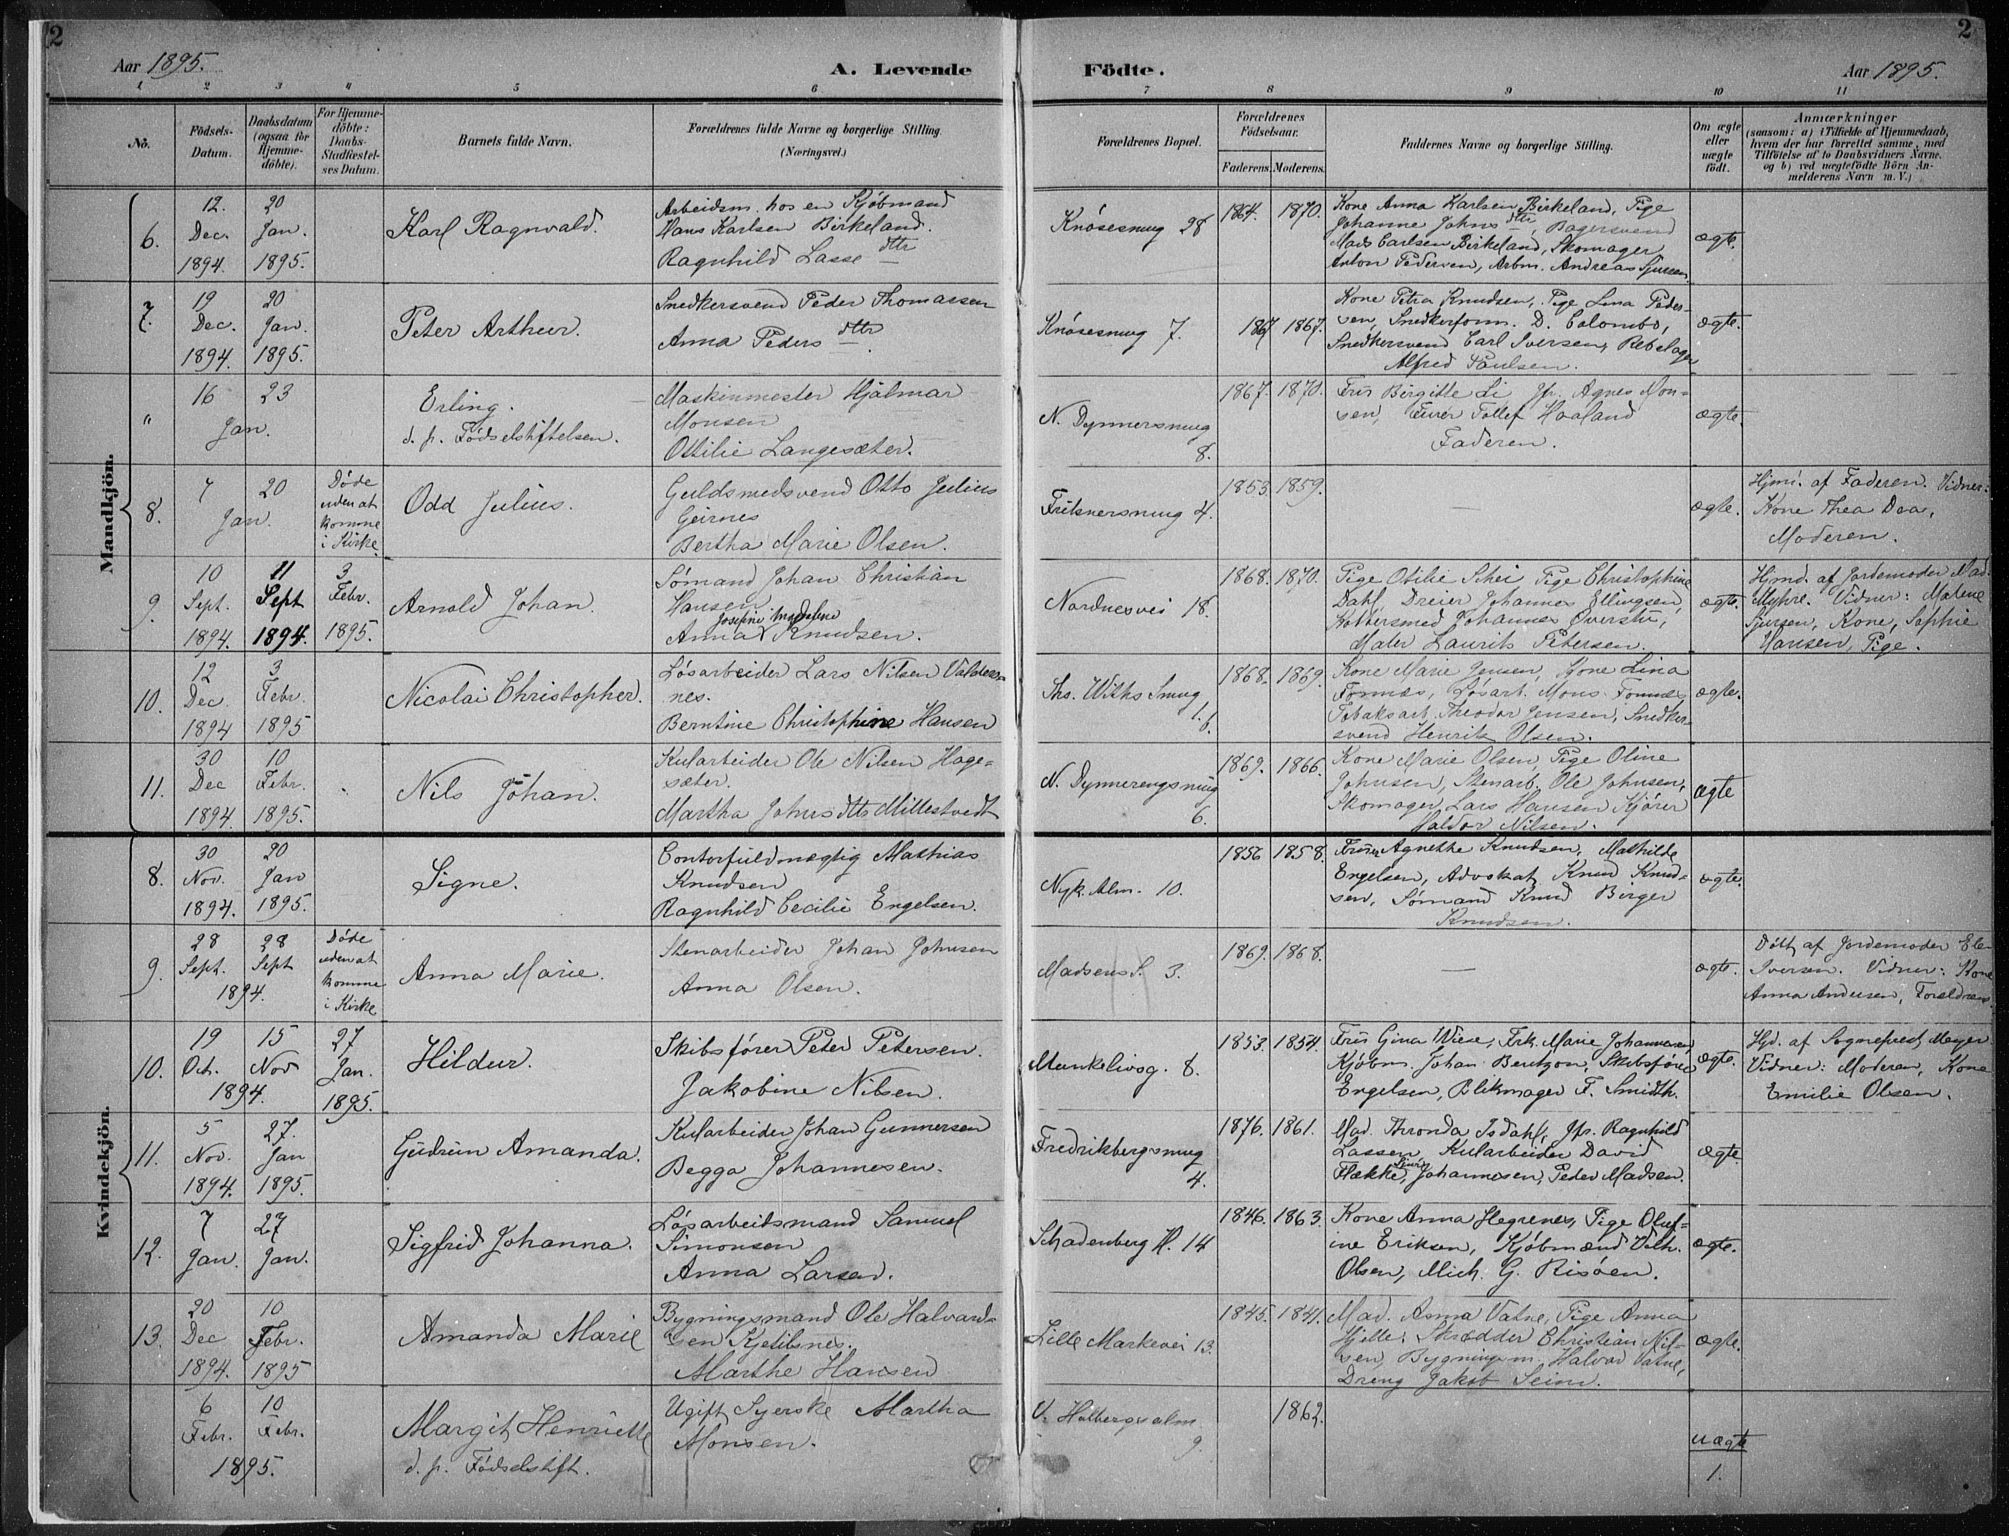 2
Aar 1895.
A. Levende
Födte.
Aar 1895.
2
1 2 3 4 5 6 7 8 9 10 11
No.
Födsels-
Datum.
Daabsdatum
(ogsaa for
Hjemme-
döbte).
For Hjemme-
döbte:
Daabs-
Stadfæstel-
ses Datum.
Barnets fulde Navn.
Forældrenes fulde Navne og borgerlige Stilling.
(Næringsvei.)
Forældrenes Bopæl.
Forældrenes
Födselsaar.
Faderens.
Moderens.
Faddernes Navne og borgerlige Stilling.
Om ægte
eller
uægte
födt.
Anmærkninger
(saasom: a) i Tilfælde af Hjemmedaab,
hvem der har forrettet samme, med
Tilföielse af to Daabsvidners Navne.
og b) ved uægtefödte Börn An-
melderens Navn m. V.)
Mandkjön.
6.
12.
Dec.
1894.
20
Jan.
1895.
Karl Ragnvald.
Arbeidsm. hos en Kjöbmand
Hans Karlsen Birkeland.
Ragnhild Lasse dttr
Knösesmug 28
1864.
1870.
Kone Anna Karlsen Birkeland, Pige
Johanne Johns dttr, Bagersvend
Mads Carlsen Birkeland, Skomager
Anton Pedersen, Arbm. Andreas Sjursen
ægte.
7.
19
Dec.
1894
20
Jan.
1895.
Peter Arthur.
Snedkersvend Peder Thomassen
Anna Peders dttr.
Knösesmug 7.
1867
1867.
Kone Petra Knudsen, Pige Lina Peder-
sen, Snedkerform. D. Colombo,
Snedkersvend Carl Iversen, Rebslager
Alfred Paulsen.
ægte.
"
16
23
Jan.
Erling.
d. p. Födselstiftelsen.
Maskinmester Hjalmar
Monsen
Ottilie Langesæter.
N. Dynnersmug
8.
1867.
1870.
Frus Birgitte Li Jfr. Agnes Mon-
sen, Furer Tollef Haaland
Faderen.
ægte.
8.
7
20
Jan.
Döde
uden at
komme
i Kirke.
Odd Julius.
Guldsmedsvend Otto Julius
Geirnes
Bertha Marie Olsen.
Fritznersmug 4.
1853.
1859.
—
ægte.
Hjm. af Faderen. Vidner:
Kone Thea Daa,
Moderen.
9.
10
Sept.
1894.
11
Sept
1894.
3
Febr.
1895.
Arnold Johan.
Sömand Johan Christian
Hansen
Josefine Magdalene
Anna Knudsen.
Nordnesvei 18.
1868.
1870.
Pige Otilie Schei Pige Christophine
Dahl, Dreier Johannes Ellingsen,
Kobbersmed Johannes Överstu,
Maler Laurits Petersen.
ægte.
Hjmd. af Jordemoder Mad.
Myhre. Vidner: Malene
Sjursen, Kone, Sophie
Hansen, Pige.
10.
12
Dec.
1894
3
Febr.
1895
Nicolai Christopher.
Lösarbeider Lars Nilsen Valders-
nes.
Berntine Christophine Hansen
Ths. Withs Smug
1.b.
1868.
1869.
Kone Marie Jensen, Kone Lina
Fornæs, Lösarb. Mons Fornæs
Tobaksarb. Theodor Jensen, Snedker-
svend Henrik Olsen.
ægte.
11.
30
Dec
1894.
10
Febr.
1895.
Nils Johan.
Kularbeider Ole Nilsen Hage-
sæter.
Martha Johns dttr Millestvedt
N. Dynnerengsmug
6.
1869.
1866.
Kone Marie Olsen, Pige Oline
Johnsen, Stenarb. Ole Johnsen,
Skomager Lars Hansen Kjörer
Haldor Nilsen.
ægte
Kvindekjön.
8.
30
Nov.
1894.
20
Jan
1895.
Signe.
Contorfuldmægtig Mathias
Knudsen
Ragnhild Cecilie Engelsen.
Nyk. Alm. 10.
1856
1858.
Fruer Agnethe Knudsen, Mathilde
Engelsen, Advokat Knud Knud-
sen, Sömand Knud Birger
Knudsen.
ægte.
9.
28
Sept.
28
Sept
1894.
Döde
uden at
komme
i Kirke
Anna Marie.
Stenarbeider Johan Johnsen
Anna Olsen.
Madsens S. 3.
1869.
1868.
—
ægte.
Döbt af Jordemoder Ele-
Iversen. Vidner: Kone
Anna Andersen, Forældrene.
10.
19
Oct.
15
Nov
1894.
27
Jan.
1895.
Hildur.
Skibsförer Peter Petersen.
Jakobine Nilsen.
Munkelivsg. 8.
1853.
1854.
Frus Gina Wiese, Frk. Marie Johannesen,
Kjöbm. Johan Bentzon, Skibsförer
Engelsen, Blikmager F. Smidth.
ægte.
Hjd. af Sognepræst Meyer
Vidner: Moderen, Kone
Emilie Olsen.
11.
5
Nov.
1894.
27.
Jan
1895.
Gudrun Amanda.
Kularbeider Johan Gunnersen
Begga Johannesen.
Fredrikbergsmug
4.
1876.
1861.
Mad. Thronda Isdahl, Jfr. Ragnhild
Lassen, Kularbeider David
Flække, Johannesen, Peder Madsen.
ægte
12.
7
Jan.
27
Jan.
Sigfrid Johanna.
Lösarbeidsmand Samuel
Simonsen
Anna Larsen.
Schadenberg H. 14
1846.
1863.
Kone Anna Hegrenes, Pige Oluf-
ine Eriksen, Kjöbmænd Vilh.
Olsen, Mich. G. Risöen.
ægte.
13.
20
Dec
1894.
10
Febr.
1895
Amanda Marie
Bygningsmand Ole Halvard-
sen Kjetilsnes.
Marthe Hansen
Lille Markevei 13.
1845.
1841.
Mad. Anna Vatne, Pige Anna
Hjelle, Skrædder Christian Nil-
sen, Bygningsm. Halvor Vatne,
Dreng Jakob Seim.
ægte.
6
Febr.
10
Febr.
1895.
Margit Henriette
d. p. Födselstift.
Ugift Syerske Martha
Monsen.
V. Holbergsalm.
9.
1862.
uægte
1.